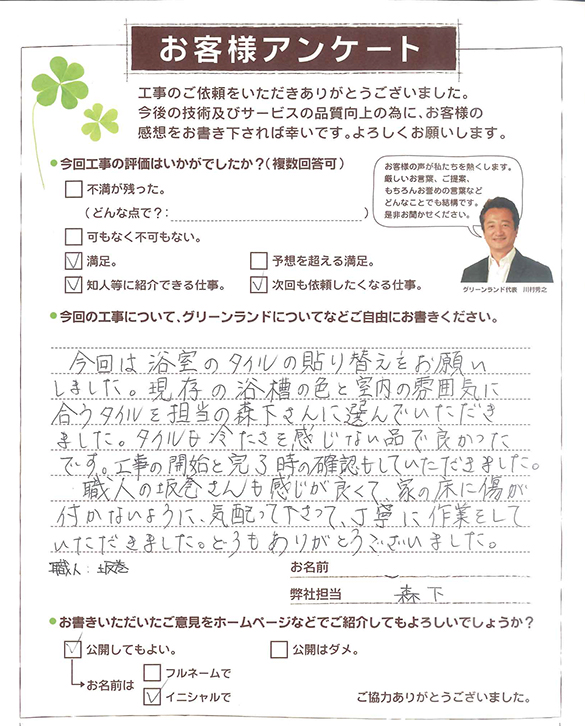 お客様アンケート
工事のご依頼をいただきありがとうございました。
今後の技術及びサービスの品質向上の為に、お客様の
感想をお書き下されば幸いです。よろしくお願いします。
今回工事の評価はいかがでしたか?(複数回答可)
不満が残った。
(どんな点で?: )
可もなく不可もない。
満足。
予想を超える満足。
知人等に紹介できる仕事。
次回も依頼したくなる仕事。
お客様の声が私たちを熱くします。
厳しいお言葉、ご提案、
もちろんお誉めの言葉など
どんなことでも結構です。
是非お聞かせください。
グリーンランド代表 川村秀之
今回の工事について、グリーンランドについてなどご自由にお書きください。
今回は浴室のタイルの貼り替えをお願い
しました。現存の浴槽の色と室内の雰囲気に
合うタイルを担当の森下さんに選んでいただき
ました。タイルも冷たさを感じない品で良かった
です。工事の開始と完了時の確認もしていただきました。
職人の坂巻さんも感じが良くて、家の床に傷が
付かないように、気配って下さって、丁寧に作業をして
いただきました。どうもありがとうございました。
職人:坂巻
お名前
弊社担当 森下
お書きいただいたご意見をホームページなどでご紹介してもよろしいでしょうか?
公開してもよい。
公開はダメ。
お名前は
フルネームで
イニシャルで
ご協力ありがとうございました。